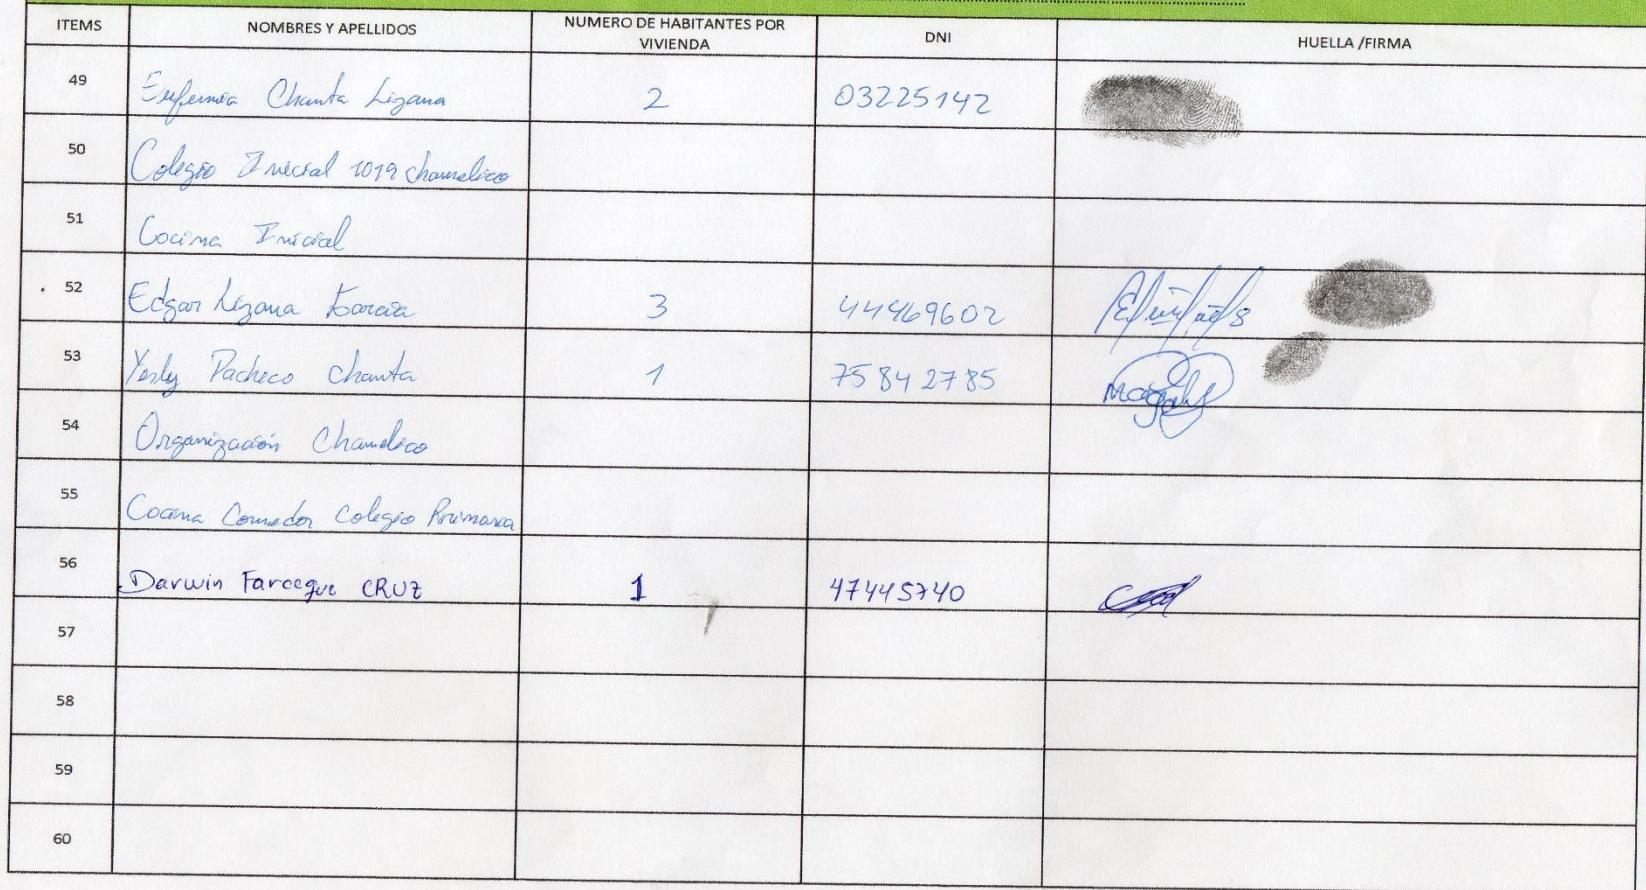 ITEMS NOMBRES Y APELLIDOS NUMERO DE HABITANTES POR VIVIENDA DNI HUELLA /FIRMA
49 Eufemia Chanta Lizana 2 03225142
50 Colegio Inicial 1019 Chamelico
51 Cocina Inicial
52 Edgar Lizana Garcia 3 44469602
53 Yesly Pacheco Chanta 1 75842785
54 Organización Chamelico
55 Cocina Comedor Colegio Primaria
56 Darwin Farceque CRUZ 1 47445740
57
58
59
60